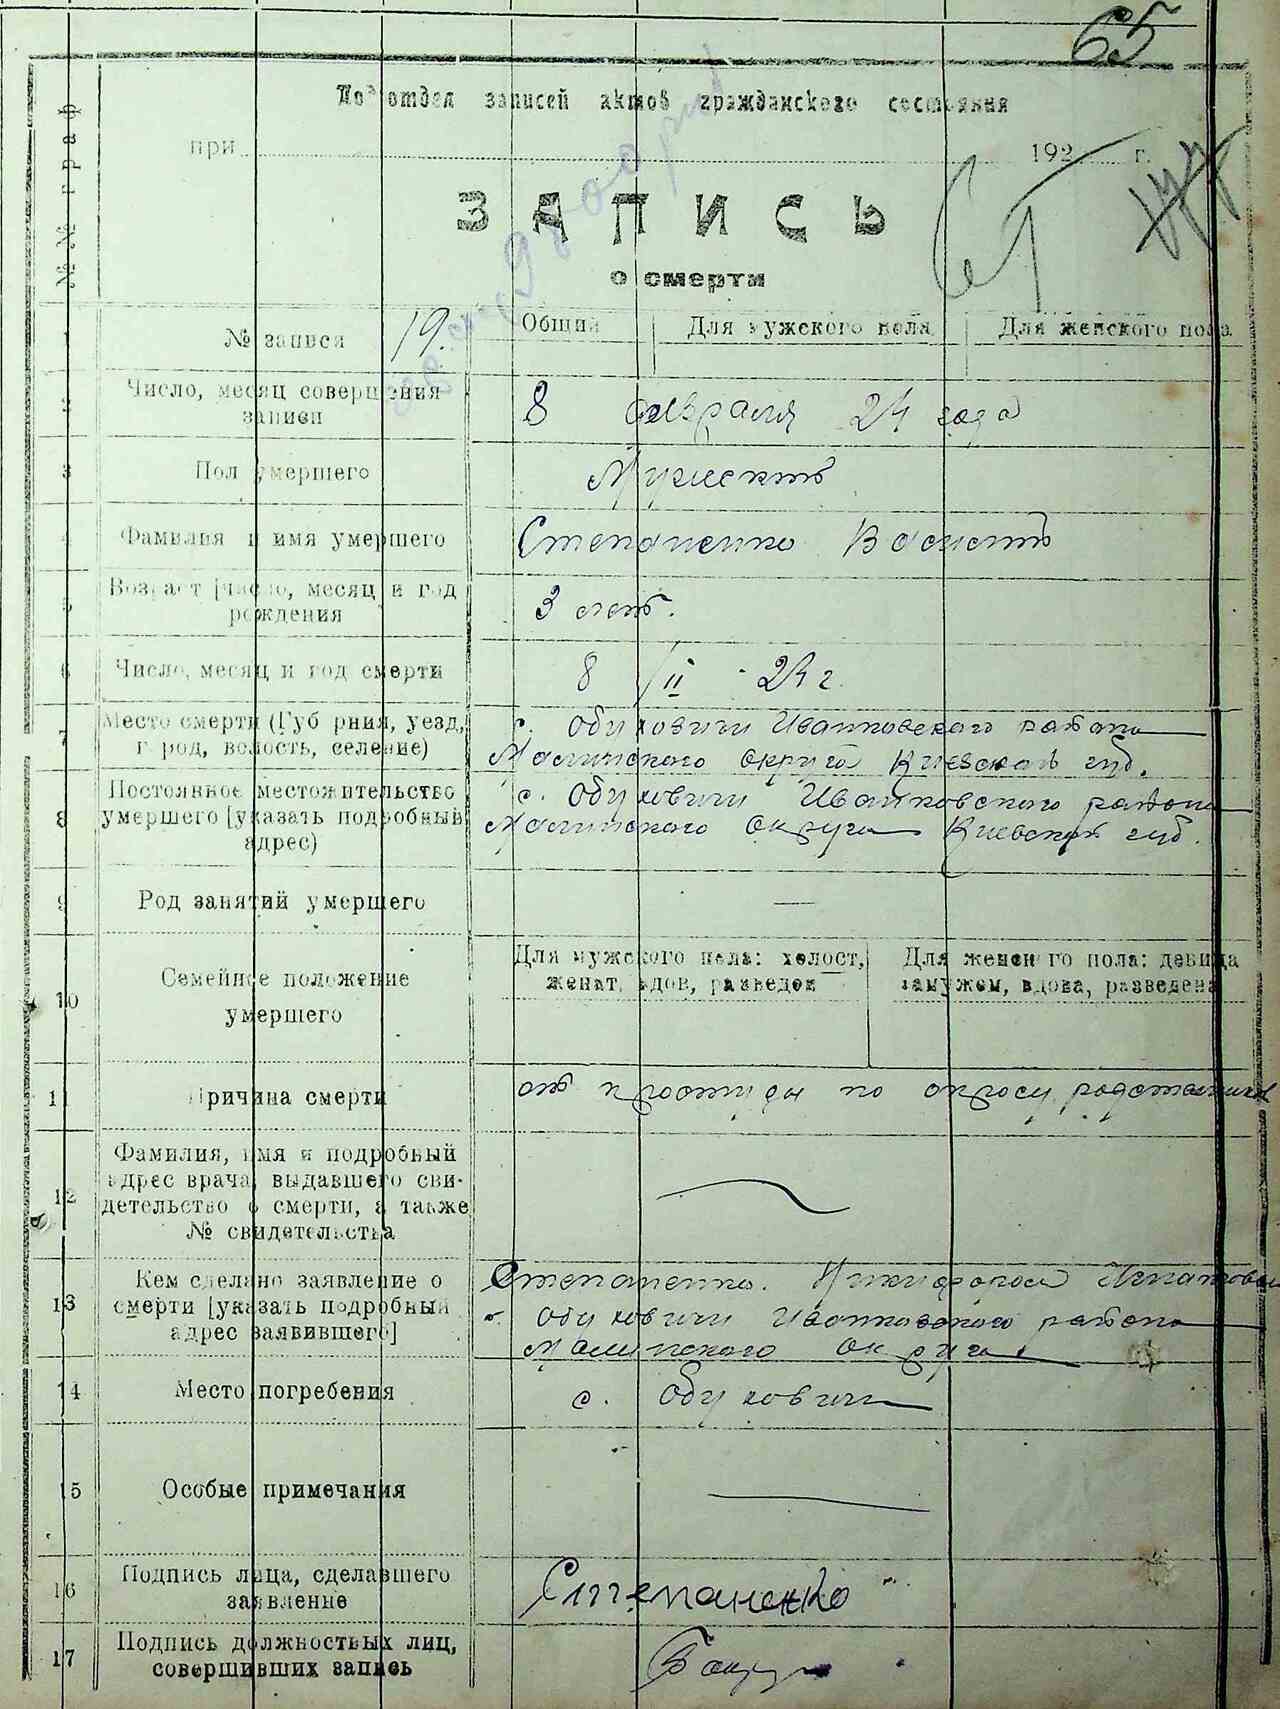 65
Подотдел записей актов гражданского состояния
при 192 г.
ЗАПИСЬ
о смерти
№№ граф
1 № записи 19. Общий Для мужского пола Для женского пола
2 Число, месяц совершения записи
8 февраля 24 года
3 Пол умершего
Мужескъ
4 Фамилия и имя умершего
Степаненко
5 Возраст [число, месяц и год рождения
3 летъ.
6 Число, месяц и год смерти
8 / II - 24 г.
7 Место смерти (Губерния, уезд, город, волость, селение)
с. Обуховичи Иванковского района
Малинского округа Киевской губ.
8 Постоянное местожительство умершего [указать подробный адрес)
с. Обуховичи Иванковского района
Малинского округа Киевской губ.
9 Род занятий умершего —
10 Семейное положение умершего
Для мужского пола: холост, женат, вдов, разведен
Для женского пола: девица замужем, вдова, разведена
11 Причина смерти
отъ простуды по опросу родственников
12 Фамилия, имя и подробный адрес врача, выдавшего свидетельство о смерти, а также № свидетельства
13 Кем сделано заявление о смерти [указать подробный адрес заявившего]
Степаненко. Никифором Игнатовым
с. Обуховичи Иванковского района
Малинского округа
14 Место погребения
с. Обуховичи
15 Особые примечания
16 Подпись лица, сделавшего заявление
Степаненко
17 Подпись должностных лиц, совершивших запись